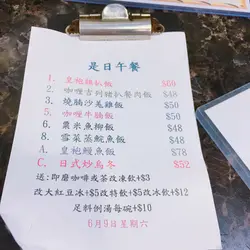 是日午餐
1. 皇炮雞扒飯 $60
2. 咖喱吉列豬扒餐肉飯 $48
3. 燒腩沙薑雞飯 $50
5. 咖喱牛腩飯 $50
6. 粟米魚柳飯 $48
7. 雪菜蒸鯇魚飯 $48
A. 皇炮鰻魚飯 $78
C. 日式炒烏冬 $52
送:即磨咖啡或茶改凍飲+$3
改大紅豆冰+$5改特飲+$5改沙冰+$12
足料例湯每碗+$10
6月9日星期六